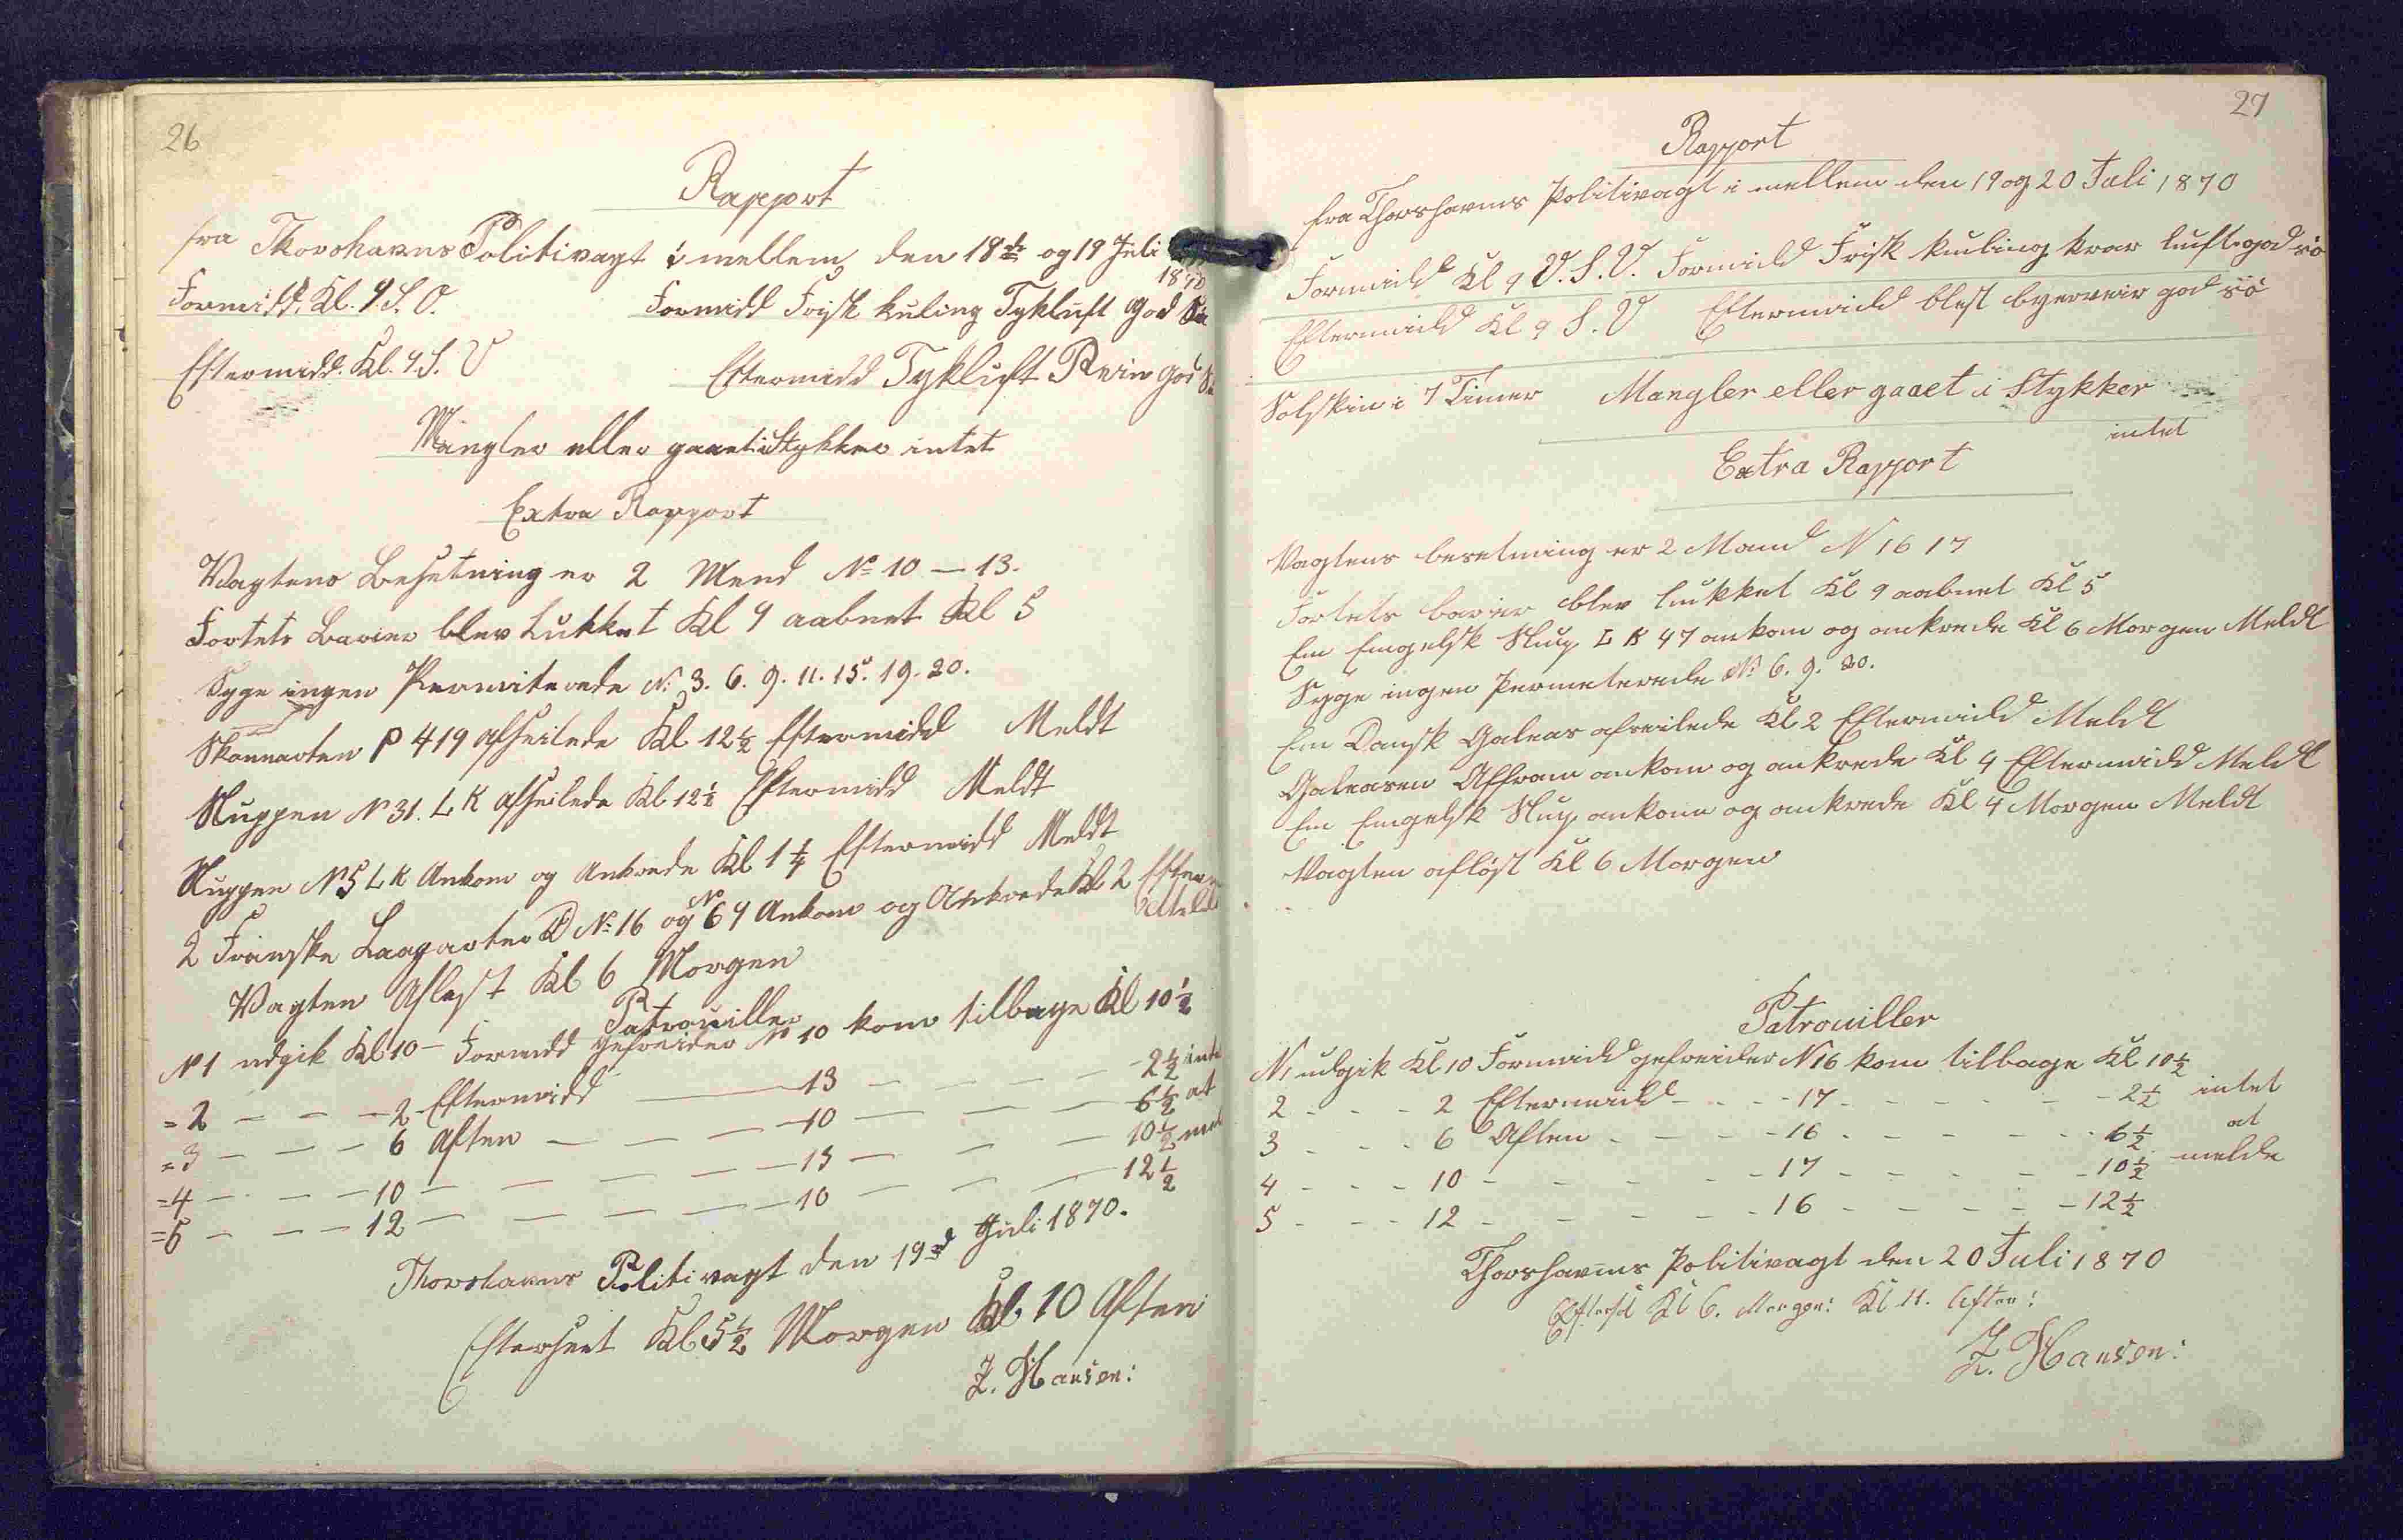 26
Rapport
fra Thorshavns Politivagt i mellem den 18de og 19 Juli
1870
Formidd. Kl. 9 S. O. Formidd Frisk kuling Tykluft god Sø
Eftermidd. Kl. 9. S. V Eftermidd Tykluft Rein god Sø
Mangler eller gaaet i Stykker intet
Extra Rapport
Vagtens Besetning er 2 Mend No 10 — 13.
Fortets Barier blev Lukket Kl 9 aabnet Kl 5
Syge ingen Permiterede N. 3. 6. 9. 11. 15. 19. 20.
Skonnarten P 419 afseilede Kl 12½ Eftermidd Meldt
Sluppen N 31. L K afseilede Kl 12½ Eftermidd Meldt
Sluppen N 5 L K Ankom og Ankrede Kl 1¼ Eftermidd Meldt
2 Franske D No 16 og No 69 Ankom og Ankrede Kl 2 Efterm
Meldt
Vagten Aflest Kl 6 Morgen
Patrouiller
N 1 udgik Kl 10 — Formidd gefreider N 10 kom tilbage Kl 10½
= 2 — — — 2 Eftermidd — 13 — — — — 2½ intet
= 3 — — — 6 Aften — — — 10 — — — 6½ at
= 4 — — — 10 — — — — 13 — — — 10½ mel
= 5 — — — 12 — — — — 10 — — — 12½
Thorshavns Politivagt den 19d Juli 1870.
Efterseet Kl 5½ Morgen Kl 10 Aften
Z. Hansen:
27
Rapport
fra Thorshavns Politivagt i mellem den 19 og 20 Juli 1870
Formidd Kl 9 V. S. V. Formidd Frisk kuling klar luft god sö
Eftermidd Kl 9 S. V Eftermidd blest byerveir god sö
Solskin i 7 Timer Mangler eller gaaet i Stykker
intet
Extra Rapport
Vagtens besetning er 2 Mand N 16 17
Fortets barier blev lukket Kl 9 aabnet Kl 5
Em Engelsk Slup L K 47 ankom og ankrede Kl 6 Morgen Meldt
Syge ingen Permeterede No 6. 9. 20.
Em Dansk Galeas afseilede Kl 2 Eftermidd Meldt
Galeasen Affram ankom og ankrede Kl 4 Eftermidd Meldt
Em Engelsk Slup ankom og ankrede Kl 4 Morgen Meldt
Vagten aflöst Kl 6 Morgen
Patrouiller
N 1 udgik Kl 10 Formidd gefreider N 16 kom tilbage Kl 10½
2 - - - 2 Eftermidd - - - 17 - - - - - 2½ intet
3 - - - 6 Aften - - - - 16 - - - - - 6½ at
4 - - - 10 - - - - - 17 - - - - - 10½ melde
5 - - - 12 - - - - - 16 - - - - - 12½
Thorshavns Politivagt den 20 Juli 1870
Eftersêt Kl 6. Morgen: Kl 11. Aften:
Z. Hansen: